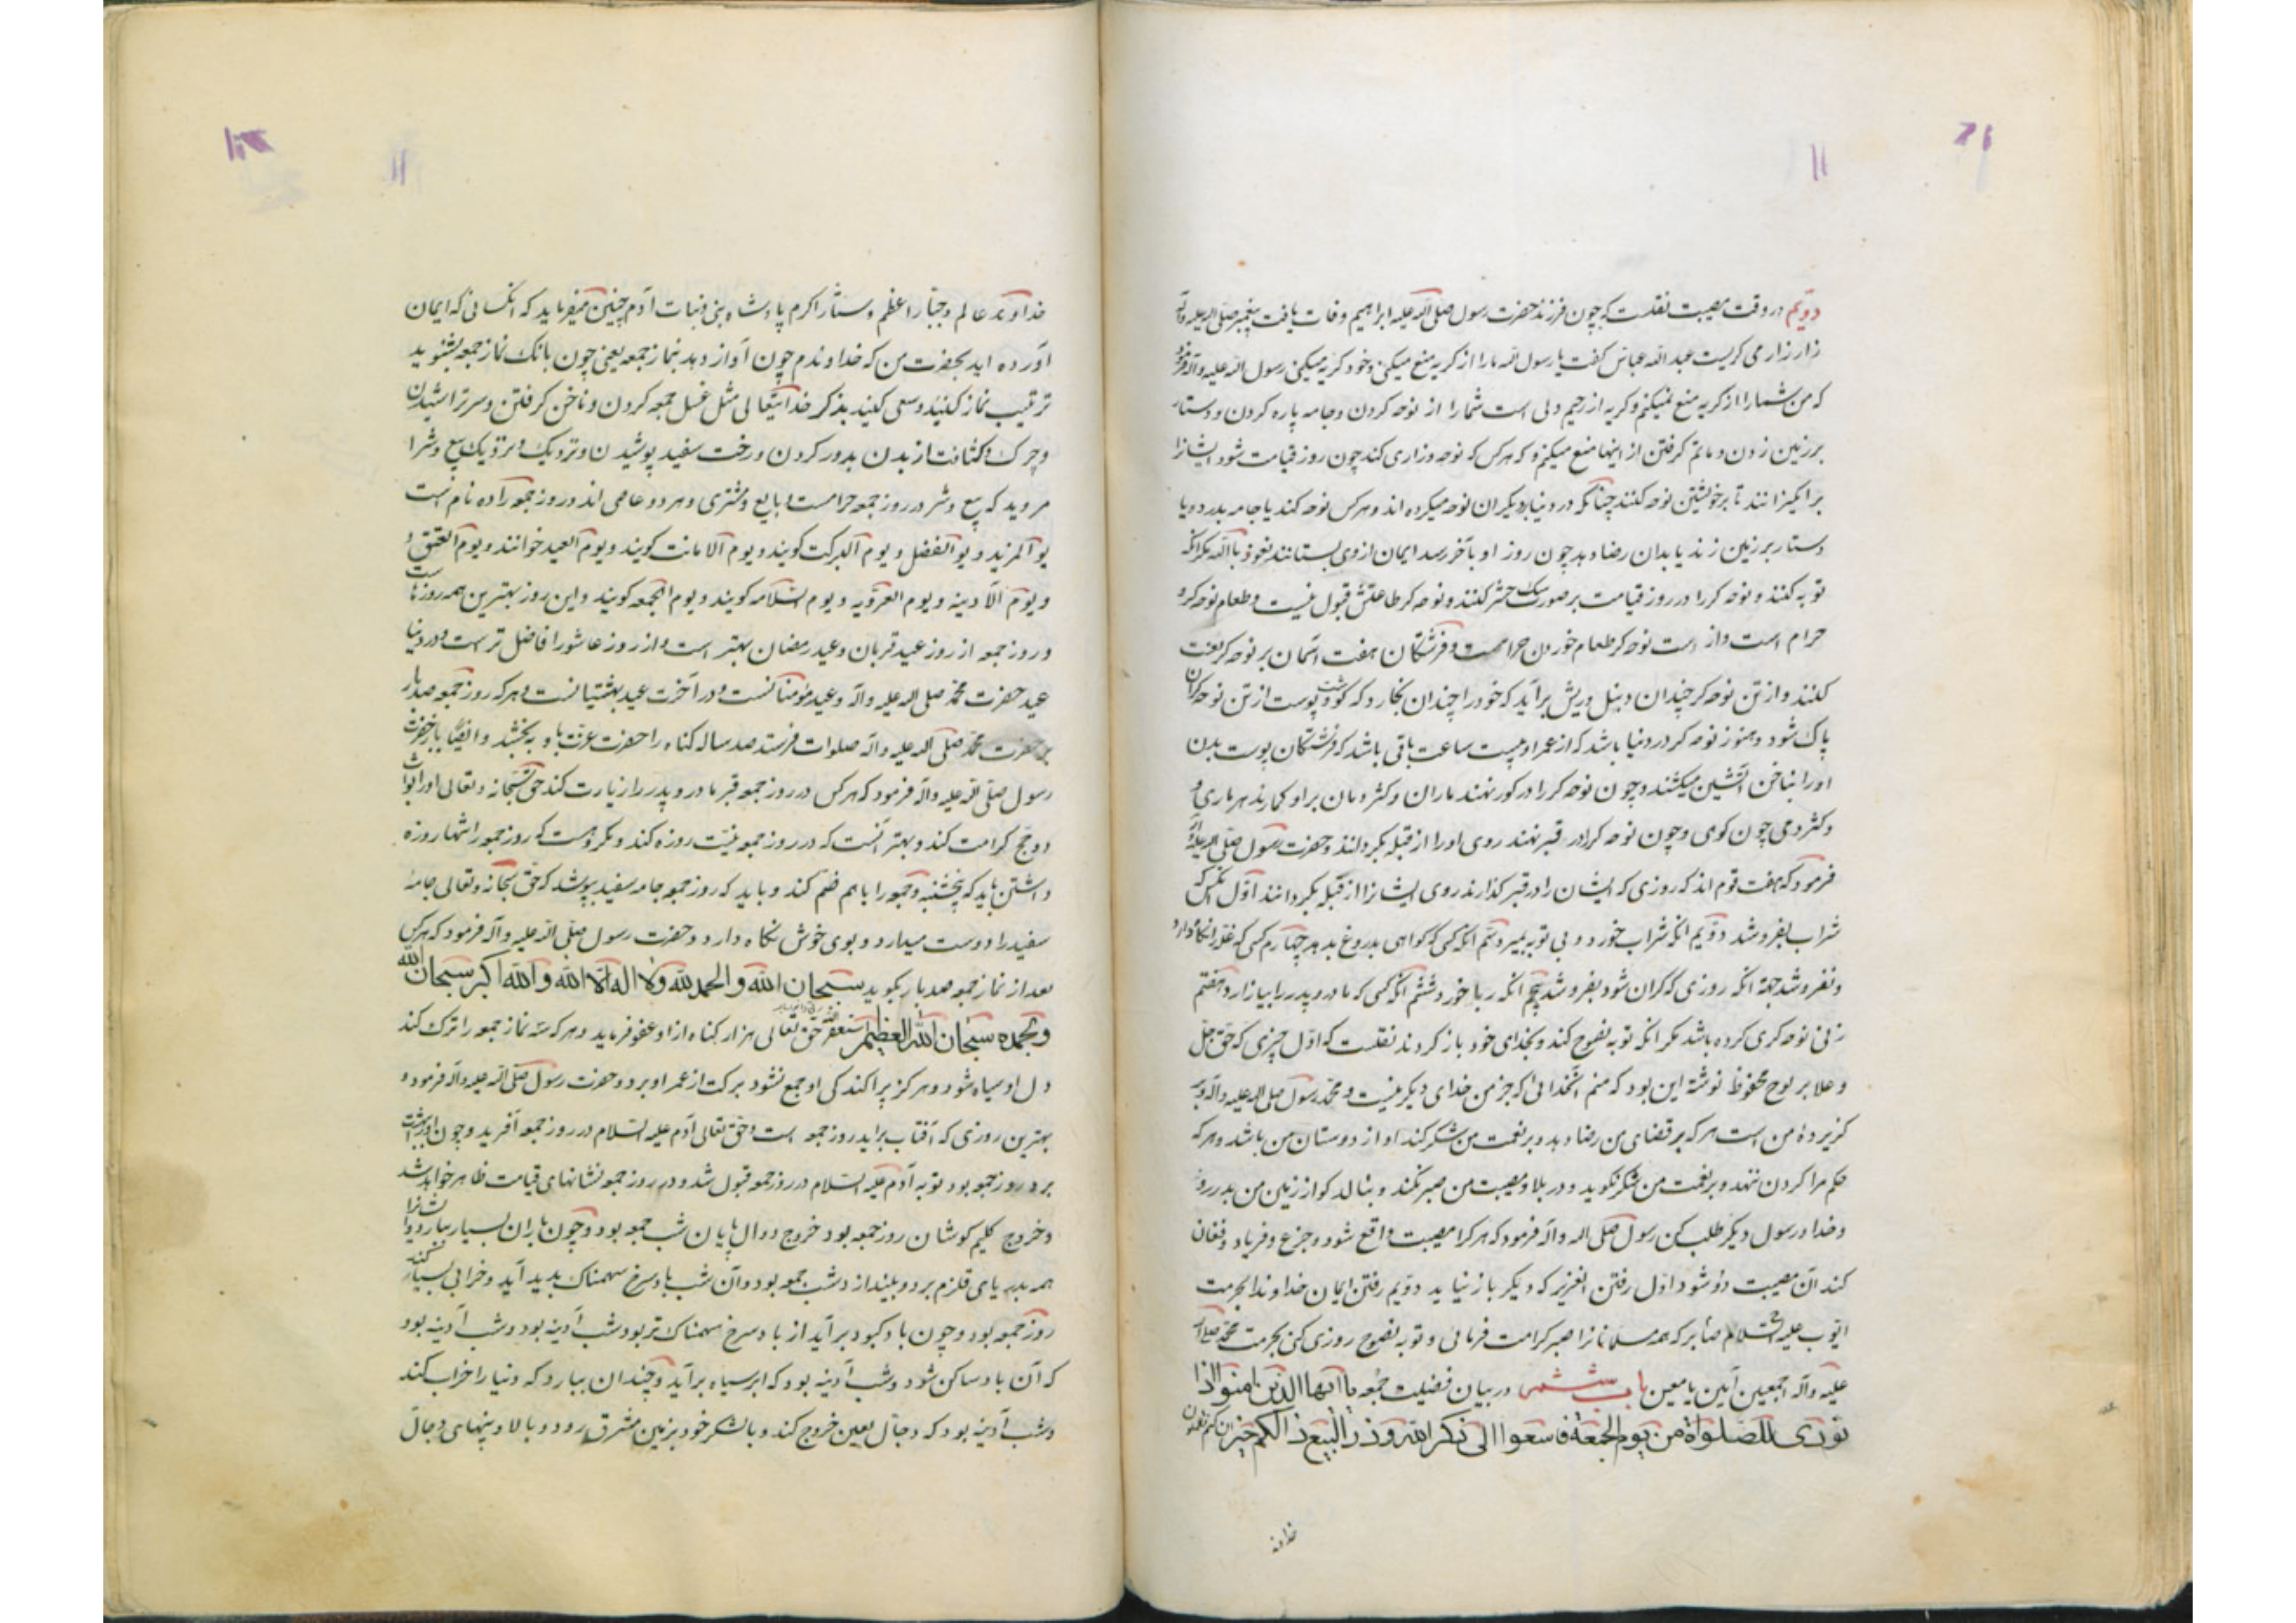 دویّم در وقت مصیبت نقلست که چون فرزند حضرت رسول صلی اله علیه ابراهیم وفات یافت پیغمبر صلی اله علیه وآله
زار زار می کریست عبد الله عباس کفت یا رسول الله ما را از کریه منع میکنی و خود کریه میکنی رسول اله علیه وآله فرمود
که من شما را از کریه منع نمیکنم و کریه از رحیم دلی است شما را از نوحه کردن و جامه پاره کردن و دستار
بر زمین زدن و ماتم کرفتن از اینها منع میکنم و که هر کس که نوحه و زاری کند چون روز قیامت شود ایشانرا
بر انکیزانند تا بر خویشتن نوحه کنند چنانکه در دنیا بر دیکران نوحه میکرده اند و هر کس نوحه کند یا جامه بدرد و یا
دستار بر زمین زند یا بدان رضا دهد چون روز او بآخر رسد ایمان از وی بستانند نعوذ باالله مکر انکه
توبه کنند و نوحه کر را در روز قیامت بر صورت سک حشر کنند و نوحه کر طاعتش قبول نیست و طعام نوحه کر
حرام است و از دست نوحه کر طعام خوردن حرامست و فرشتکان هفت آسمان بر نوحه کر لعنت
کنند و از تن نوحه کر چندان دبنل و ریش بر آید که خود را چندان بخارد که کوشت و پوست از تن نوحه کران
پاک شود و هنوز نوحه کر در دنیا باشد که از عمر او بیست ساعت باقی باشد که فرشتکان پوست بدن
او را بناخن آتشین میکشند و چون نوحه کر را در کور نهند ماران و کثردمان بر او کمارند هر ماری و
و کثردمی چون کوی و چون نوحه کر را در قبر نهند روی او را از قبله بکردانند و حضرت رسول صلی اله علیه وآله
فرمود که هفت قوم اند که روزی که ایشان را در قبر کذارند روی ایشانرا از قبله بکردانند اوّل کس که
شراب بفروشد دوّیم انکه شراب خورد و بی توبه بمیرد سیّم انکه کسی که کواهی بدروغ بدهد چهارم کسی که غله را نکاه دارد
و نفروشد جهة انکه روزی که کران شود بفروشد پنجم انکه ربا خورد ششم انکه کسی که مادر و پدر را بیازارد هفتم
زنی نوحه کری کرده باشد مکر انکه توبه نصوح کند و بخدای خود باز کردند نقلست که اوّل چیزی که حق جل
و علا بر لوح محفوظ نوشته این بود که منم آنخدائی که جز من خدای دیکر نیست و محمد رسول صلی اله علیه وآله
کزیردهٔ من است هر که بر قضای من رضا دهد و بر نعمت من شکر کند او از دوستان من باشد و هر که
حکم مرا کردن ننهد و بر نعمت من شکر نکوید و در بلا و مصیبت من صبر نکند و بنالد کو از زمین من بدر رو
و خدا و رسول دیکر طلب کن رسول صلی اله وآله فرمود که هر کرا مصیبت واقع شود و جزع و فریاد و فغان
کند آن مصیبت دو شود اوّل رفتن العزیز که دیکر باز نیاید دوّیم رفتن ایمان خداوندا بحرمت
ایّوب علیه السّلام صابر که همه مسلمانانرا صبر کرامت فرمائی و توبه نصوح روزی کنی بحرمت محمد صلی اله
علیه وآله اجمعین آمین یا معین باب ششم در بیان فضیلت جمُعه یا ایها الذین امنو اذا
نودی للصّلوة من یوم الجمعة فاسعوا الی ذکر الله و ذر البیع ذالکم خیر ان کنتم تعلمون
خداوند
خداوند عالم و جبّار اعظم و ستّار اکرم پادشاه بنی و بنات آدم چنین میفرماید که انکسانی که ایمان
آورده اید بحضرت من که خداوندم چون آواز دهد بنماز جمعه یعنی چون بانک نماز جمعه بشنوید
ترتیب نماز کنید و سعی کنید بذکر خدایتعالی مثل غسل جمعه کردن و ناخن کرفتن و سر تراشیدن
و چرک و کثافت از بدن بدور کردن و رخت سفید پوشیدن و نزدیک بیع و شرا
مروید که بیع و شر در روز جمعه حرامست و بایع و مشتری و هر دو عاصی اند و روز جمعه را ده نام است
یوم المزید و یوم الفضل و یوم البرکت کویند و یوم الامانت کویند و یوم العید خوانند و یوم العتق و
و یوم الآدینه و یوم العرّوبه و یوم السّلامه کویند و یوم الجمعه کویند و این روز بهترین همه روزهاست
و روز جمعه از روز عید قربان و عید رمضان بهتر است و از روز عاشورا فاضل تر است و در دنیا
عید حضرت محمد صلی اله علیه وآله و عید مؤمنانست و در آخرت عید بهشتیانست و هر که روز جمعه صد بار
بر حضرت محمد صلی اله علیه وآله صلوات فرستد صد ساله کناه را حضرت عزّت باو ببخشد و ایضًا باز حضرت
رسول صلی اله علیه وآله فرمود که هر کس در روز جمعه قبر مادر و پدر را زیارت کند حق سبحانه و تعالی او را ثواب
دو حج کرامت کند و بهتر آنست که در روز جمعه نیّت روزه کند و مکروهست که روز جمعه را تنها روزه
داشتن باید که پنجشنبه و جمعه را با هم ضم کند و باید که روز جمعه جامه سفید بپوشد که حق سبحانه و تعالی جامهٔ
سفید را دوست میدارد و بوی خوش نکاه دارد و حضرت رسول صلی اله علیه وآله فرمود که هر کس
بعد از نماز جمعه صد بار بکوید سبحان الله و الحمد لله و لا اله الا الله و الله اکبر سبحان الله
و بحمده سبحان الله العظیم استغفر حق تعالی هزار کناه از او عفو فرماید و هر که سه نماز جمعه را ترک کند
دل او سیاه شود و هرکز پراکندکی او جمع نشود برکت از عمر او برد و حضرت رسول صلی اله علیه وآله فرمود و
بهترین روزی که آفتاب بر آید روز جمعه است و حق تعالی آدم علیه السّلام در روز جمعه آفرید و چون او را ببهشت
برد روز جمعه بود توبه آدم علیه السّلام در روز جمعه قبول شد و در روز جمعه نشانهای قیامت ظاهر خواهد شد
و خروج کلیم کوشان روز جمعه بود خروج دوال پایان شب جمعه بود و چون باران بسیار ببارد و ایشانرا
همه بدریای قلزم برد و بیندازد شب جمعه بود و آن شب باد سرخ سهمناک بدید آید و خرابی بسیار کند
روز جمعه بود و چون باد کبود بر آید از باد سرخ سهمناک تر بود شب آدینه بود و شب آدینه بود
که آن باد ساکن شود و شب آدینه بود که ابر سیاه بر آید و چندان ببارد که دنیا را خراب کند
و شب آدینه بود که دجّال لعین خروج کند و با لشکر خود بزمین مشرق رود و بالا و پنهای دجال